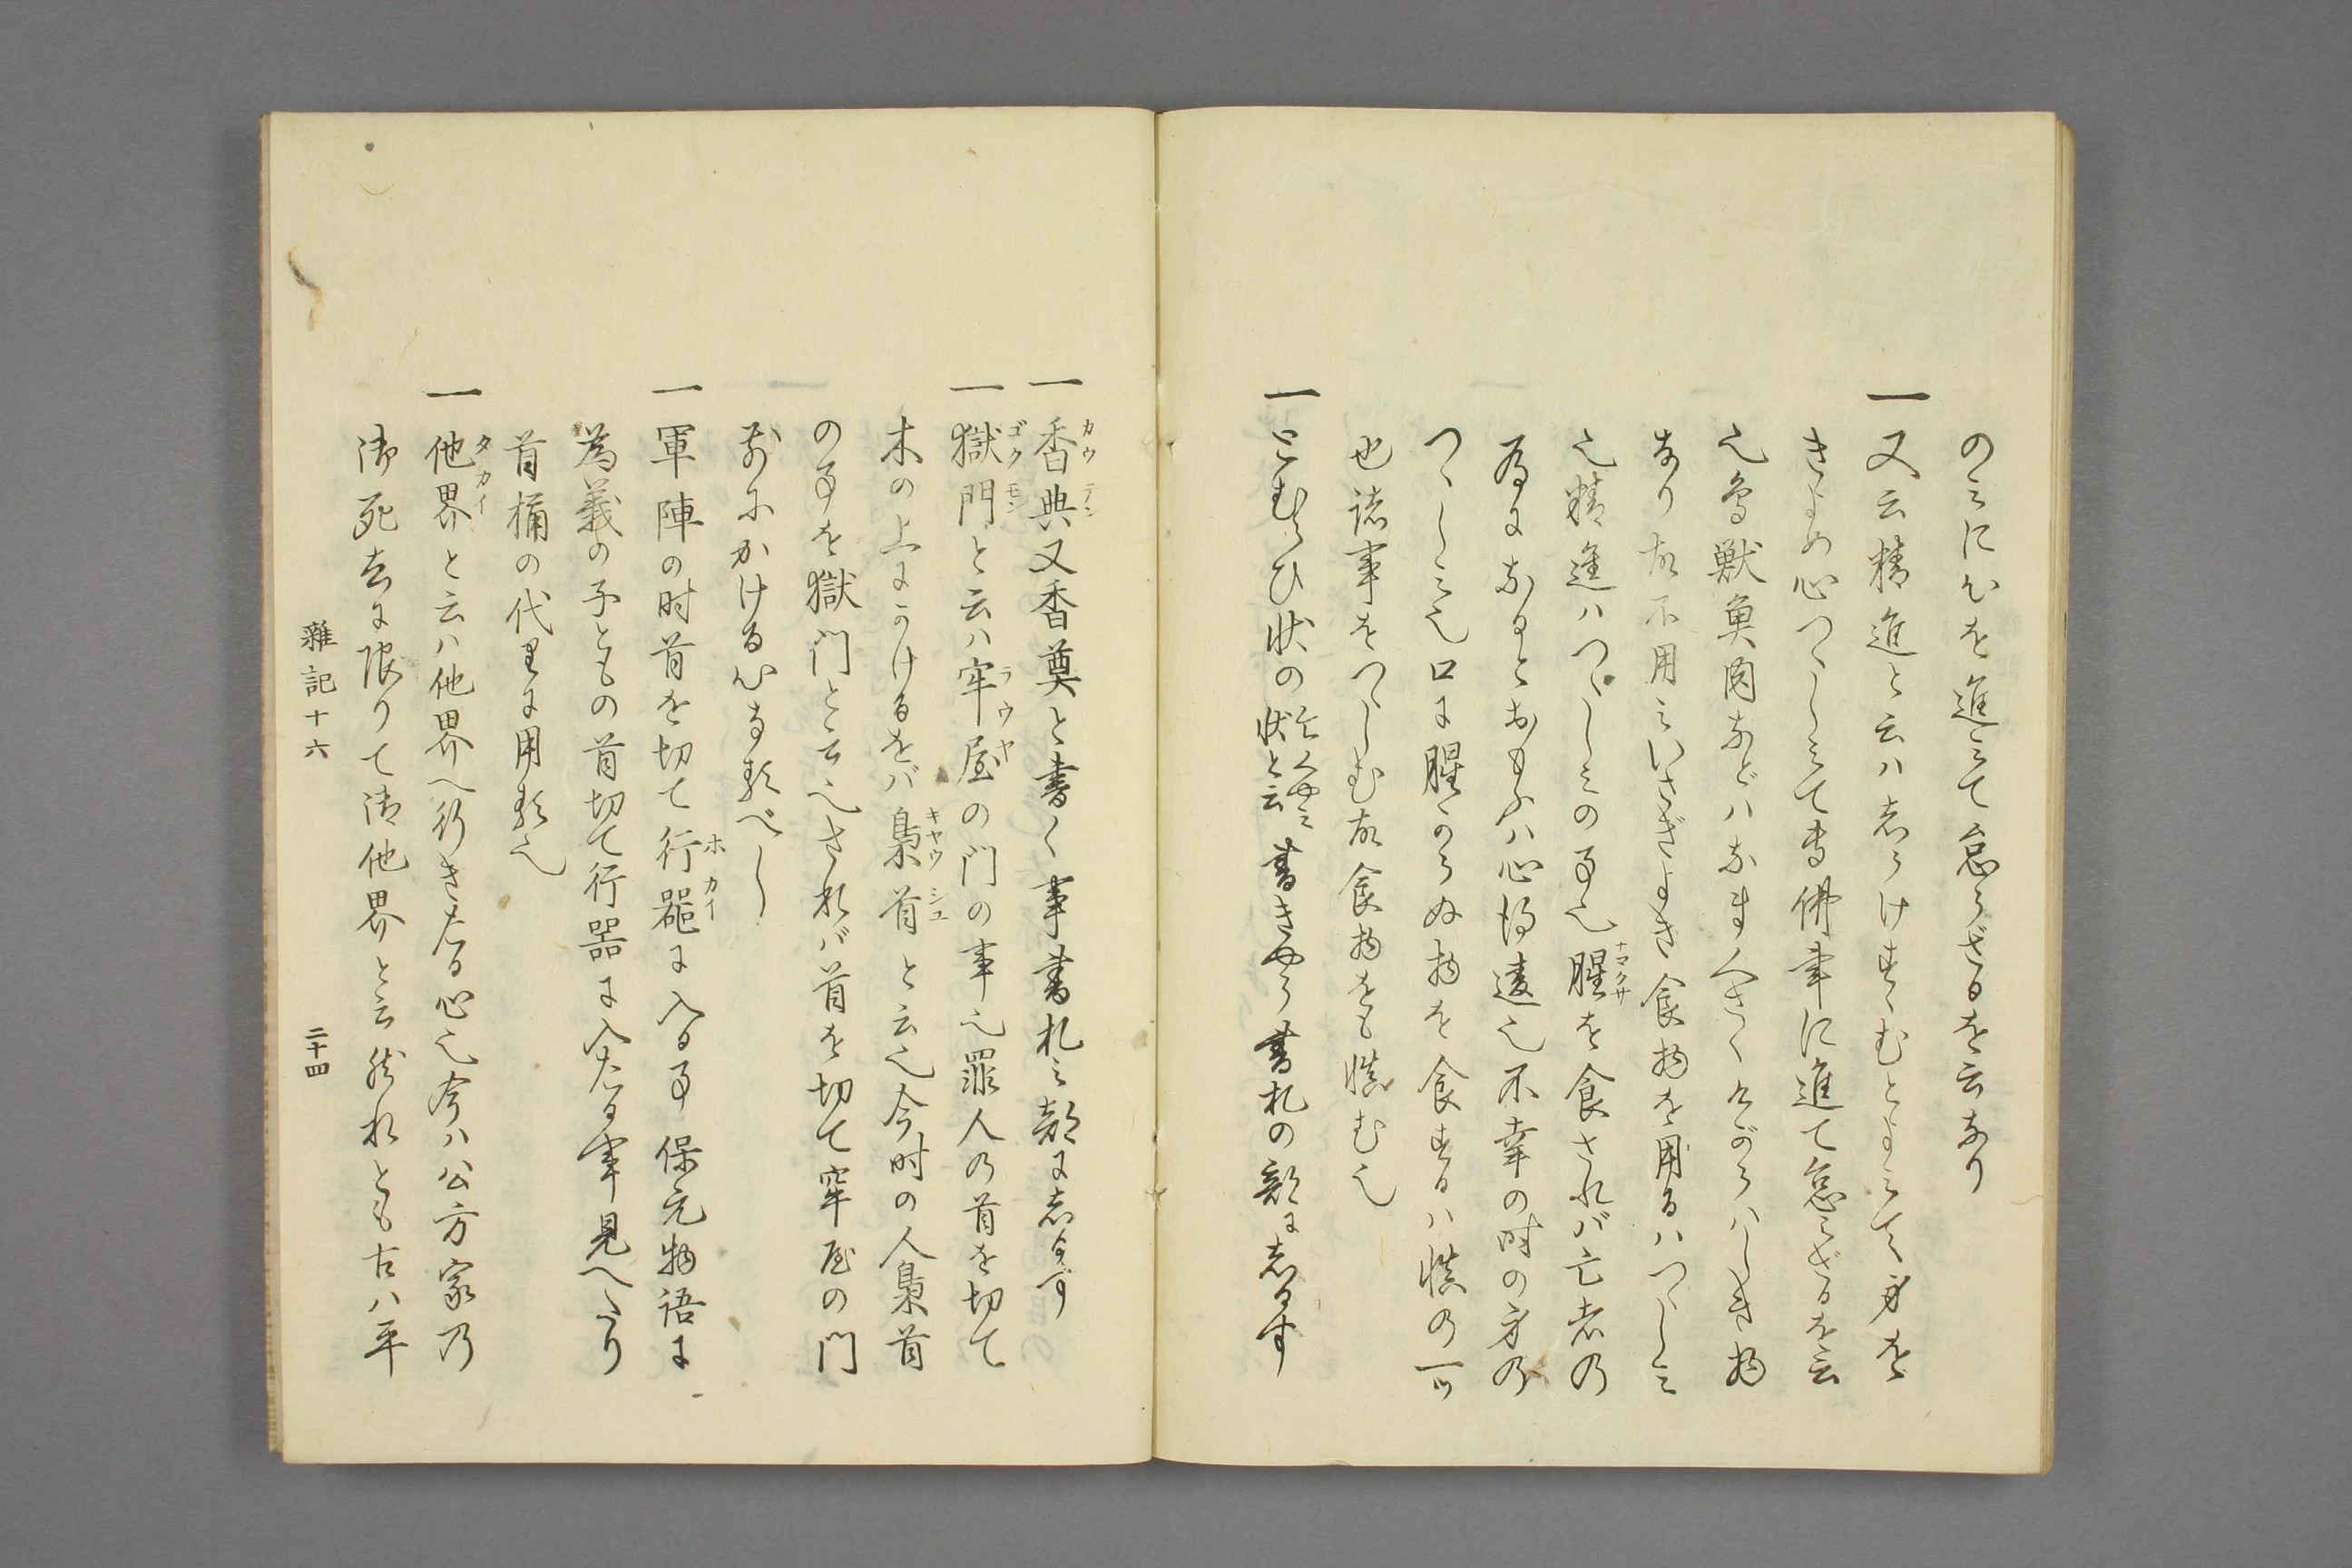 のミに心を進ミて怠らざるを云なり
一又云精進と云ハ志らけすゝむとよミて身を
きよめ心つゝしミて専佛事に進て怠ミざるを云
也鳥獣魚肉などハなまくさくけがらハしき物
なり故不用之いさぎよき食物を用るハつゝしミ
也精進ハつゝしミの事也腥を食されバ亡者の
為になるとおもふハ心得違也不幸の時の身の
つゝしミ也口に腥からぬ物を食するハ慎の一ツ
也諸事をつゝしむ故食物をも慎む也
一とむらひ状の状と云書きやう書札の部に志るす
一香典又香奠と書く事書札之部に志るす
カウテン
一獄門と云ハ牢屋の門の事也罪人の首を切て
ゴクモン ラウヤ
木の上にかけるをバ梟首と云也今時の人梟首
キヤウシユ
の事を獄門と云也されバ首を切て牢屋の門
前にかける心なるべし
一軍陣の时首を切て行器に入る事保元物語に
ホカイ
為義の子ともの首切て行器に入たる事見へたり
首桶の代りに用る也
一他界と云ハ他界へ行きたる心也今ハ公方家の
タカイ
御死去に限りて御他界と云然れとも古ハ平
雑記十六 二十四